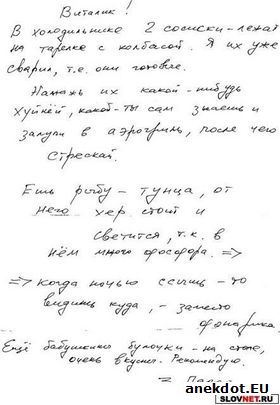 Виталик!
В холодильнике 2 сосиски - лежат
на тарелке с колбасой. Я их уже
сварил, т.е. они готовые.
Намажь их какой-нибудь
хуйнёй, какой - ты сам знаешь и
запули в аэрогриль, после чего
стрескай.
Ешь рыбу - тунца, от
него хер стоит и
светится, т.к. в
нём много фосфора. =>
=> когда ночью ссышь - то
видишь куда, - заместо
фонарика.
Ещё бабушкины булочки - на столе,
очень вкусно. Рекомендую.
Папа
anekdot.EU
SLOVNET.RU